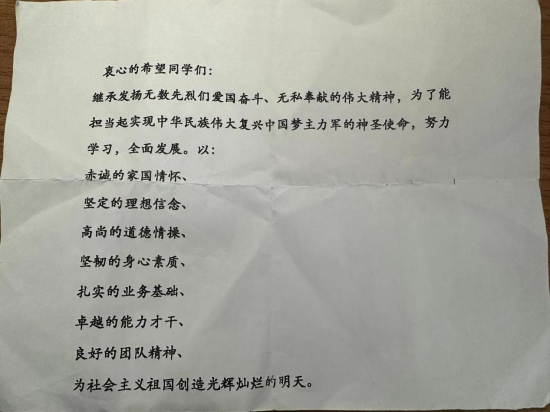 衷心的希望同学们：
继承发扬无数先烈们爱国奋斗、无私奉献的伟大精神，为了能
担当起实现中华民族伟大复兴中国梦主力军的神圣使命，努力
学习，全面发展。以：
赤诚的家国情怀、
坚定的理想信念、
高尚的道德情操、
坚韧的身心素质、
扎实的业务基础、
卓越的能力才干、
良好的团队精神、
为社会主义祖国创造光辉灿烂的明天。